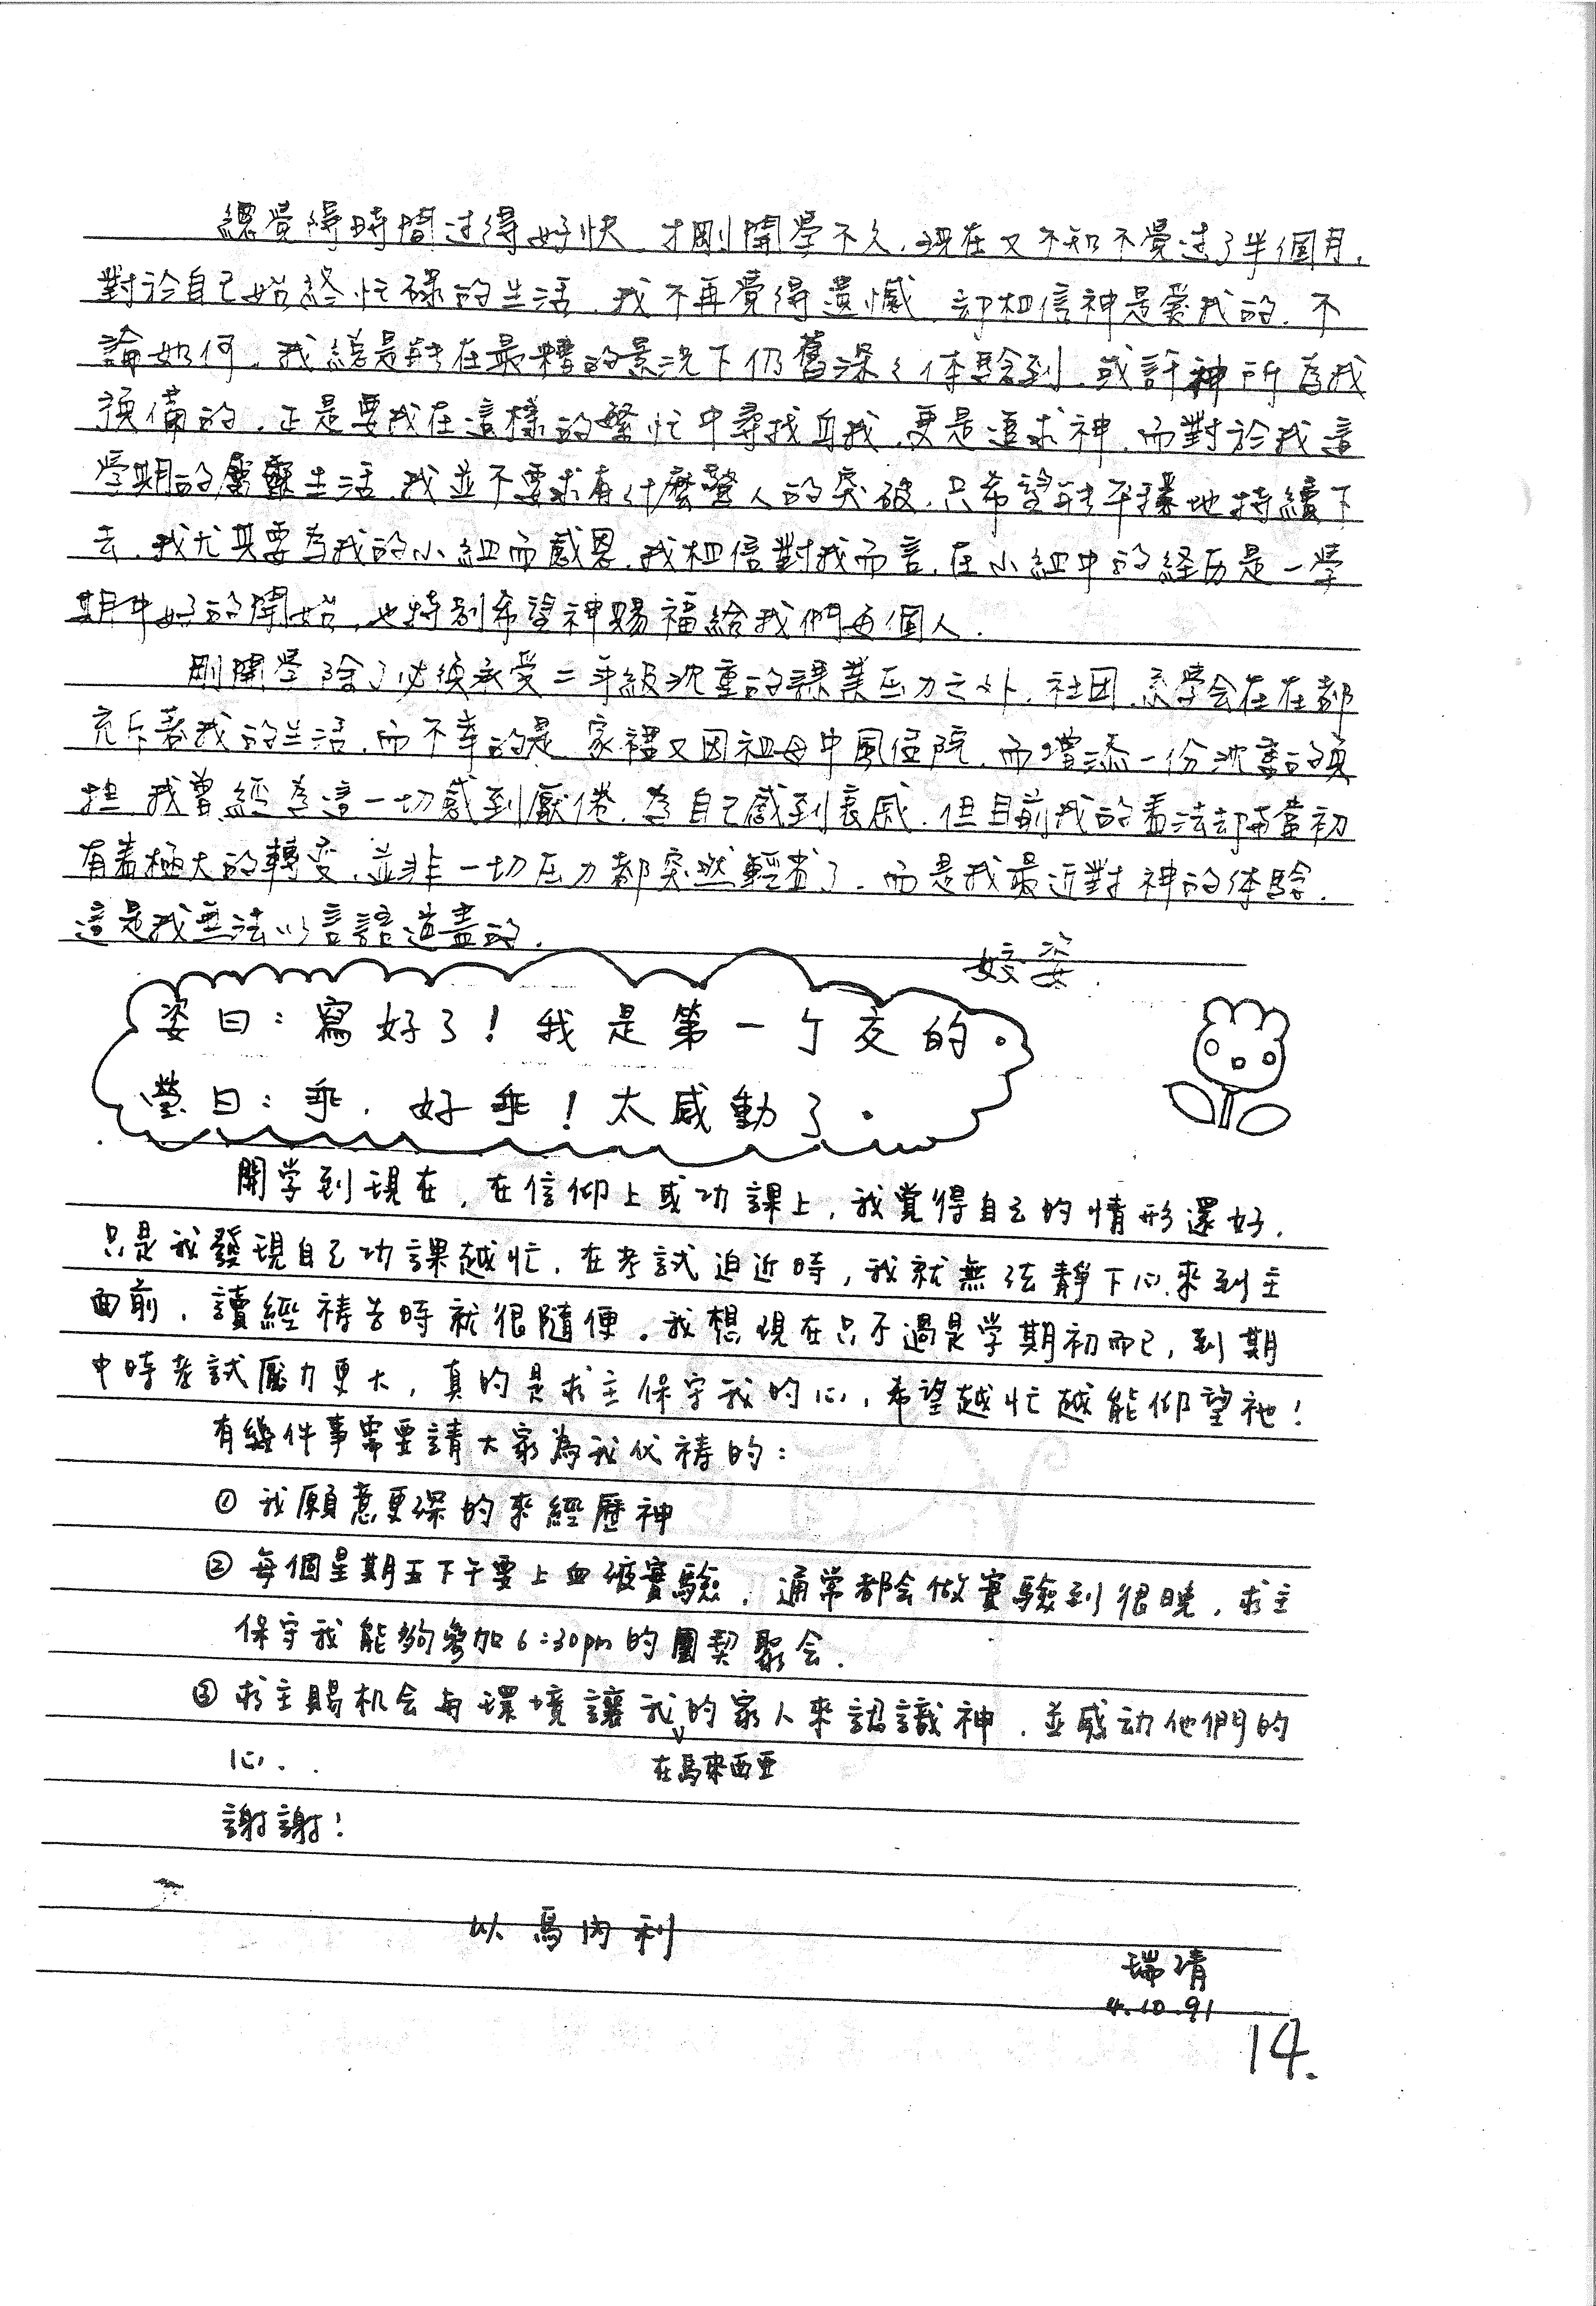 總覺得時間过得好快,才剛開學不久,現在又不知不覺过了半個月,
對於自己始終忙碌的生活,我不再覺得遺憾,却相信神是爱我的,不
論如何,我總是能在最糟的景況下仍舊深々体驗到,或許神所為我
預備的,正是要我在這樣的繁忙中尋找自我,更是追求神,而對於我這
學期的靈生活,我並不要求有什麼驚人的突破,只希望能平穩地持續下
去,我尤其要為我的小組而感恩,我相信對我而言,在小組中的経历是一學
期中好的開始,也特別希望神賜福給我們每個人.
剛開學除了必須承受二年級沈重的課業压力之外,社团,系學会在在都
充斥著我的生活,而不幸的是,家裡又因祖母中風住院,而增添一份沈重的負
担,我曾經為這一切感到厭倦,為自己感到哀戚,但目前我的看法却與當初
有着極大的轉变,並非一切压力都突然輕省了,而是我最近對神的体驗,
這是我無法以言語道盡的.
姣姿.
姿曰:寫好了!我是第一个交的.
瑩曰:乖,好乖!太感動了.
開学到現在,在信仰上或功課上,我覺得自己的情形還好,
只是我發現自己功課越忙,在考試迫近時,我就無法靜下心來到主
面前,讀經禱告時就很隨便.我想現在只不過是学期初而已,到期
中時考試壓力更大,真的是求主保守我的心,希望越忙越能仰望祂!
有幾件事需要請大家為我代禱的:
① 我願意更深的來經歷神
② 每個星期五下午要上血液實驗,通常都会做實驗到很晚,求主
保守我能夠參加6:30pm的團契聚会.
③ 求主賜机会與環境讓我的家人來認識神,並感动他們的
心.
在馬來西亞
謝謝!
以馬內利
瑞清
4.10.91
14.